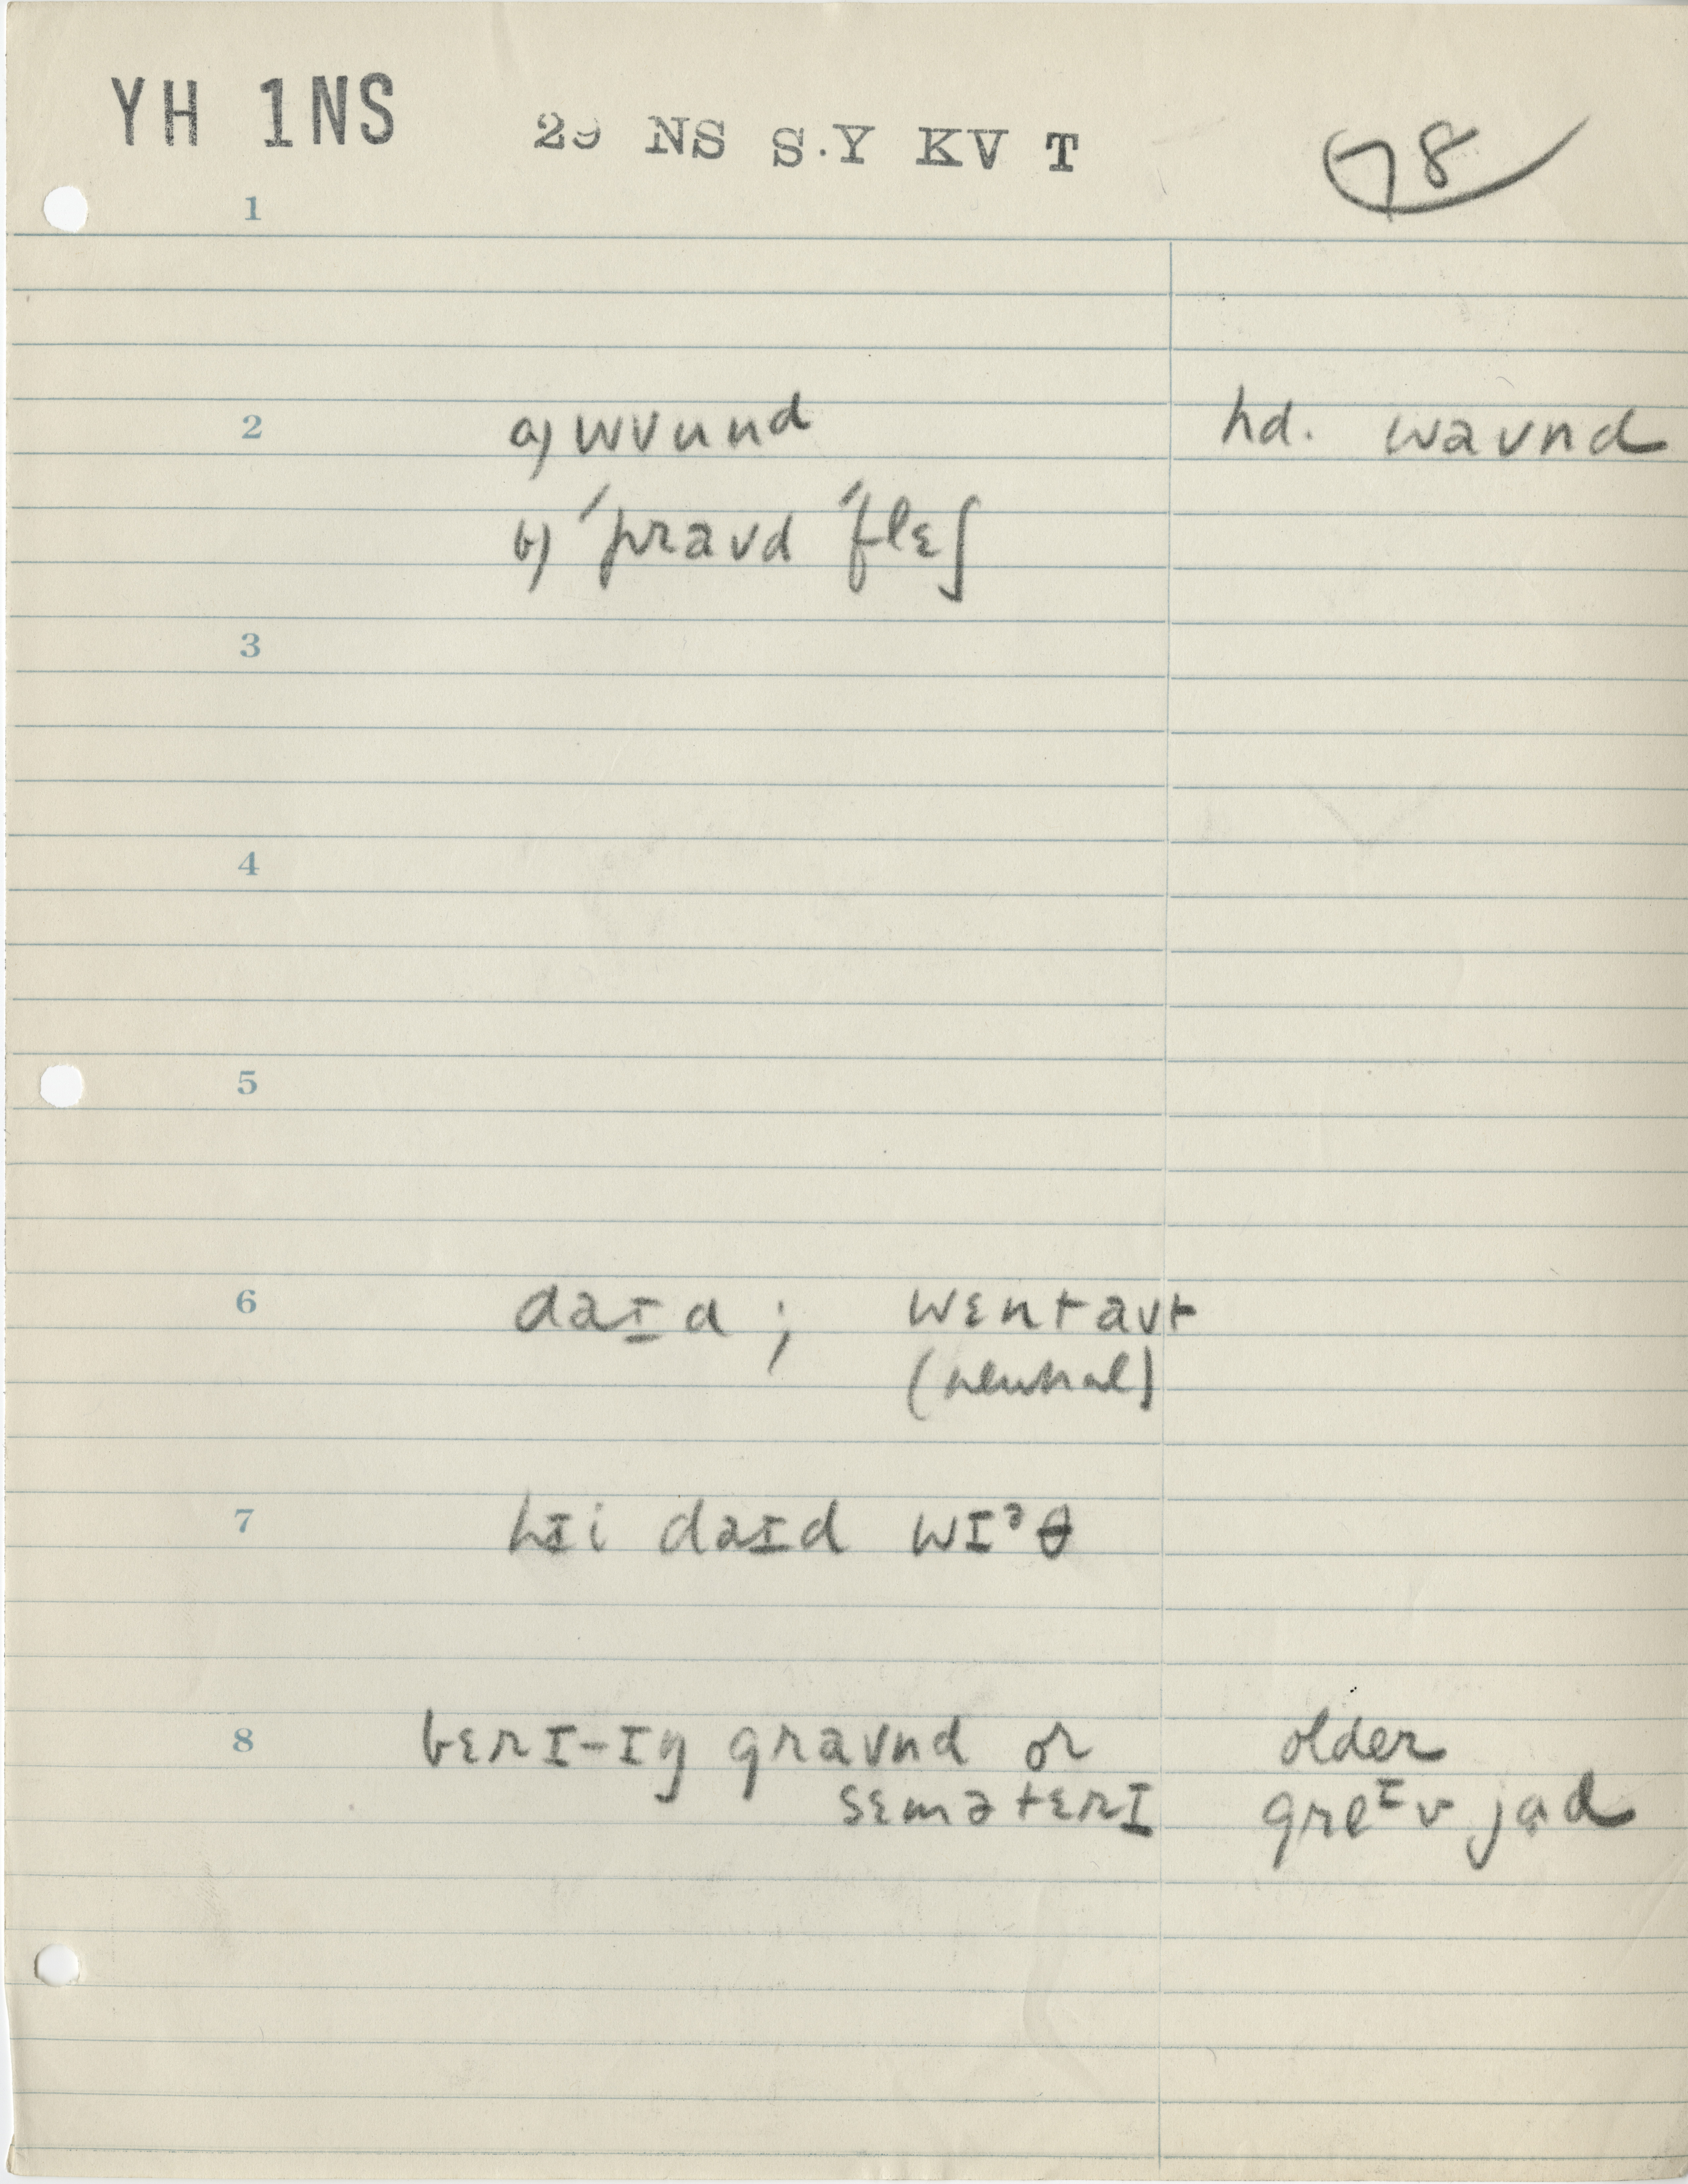 YH 1NS 29 NS S.Y KV T 78
1
2 a) wʊund hd. waʊnd
b) ˈpraʊd ˈflɛʃ
3
4
5
6 daɪd ; wɛntaʊt
(neutral)
7 hɪi daɪd wɪᵊθ
8 bɛrɪ-ɪŋ graʊnd or older
sɛmətɛrɪ greᶦv jɑd